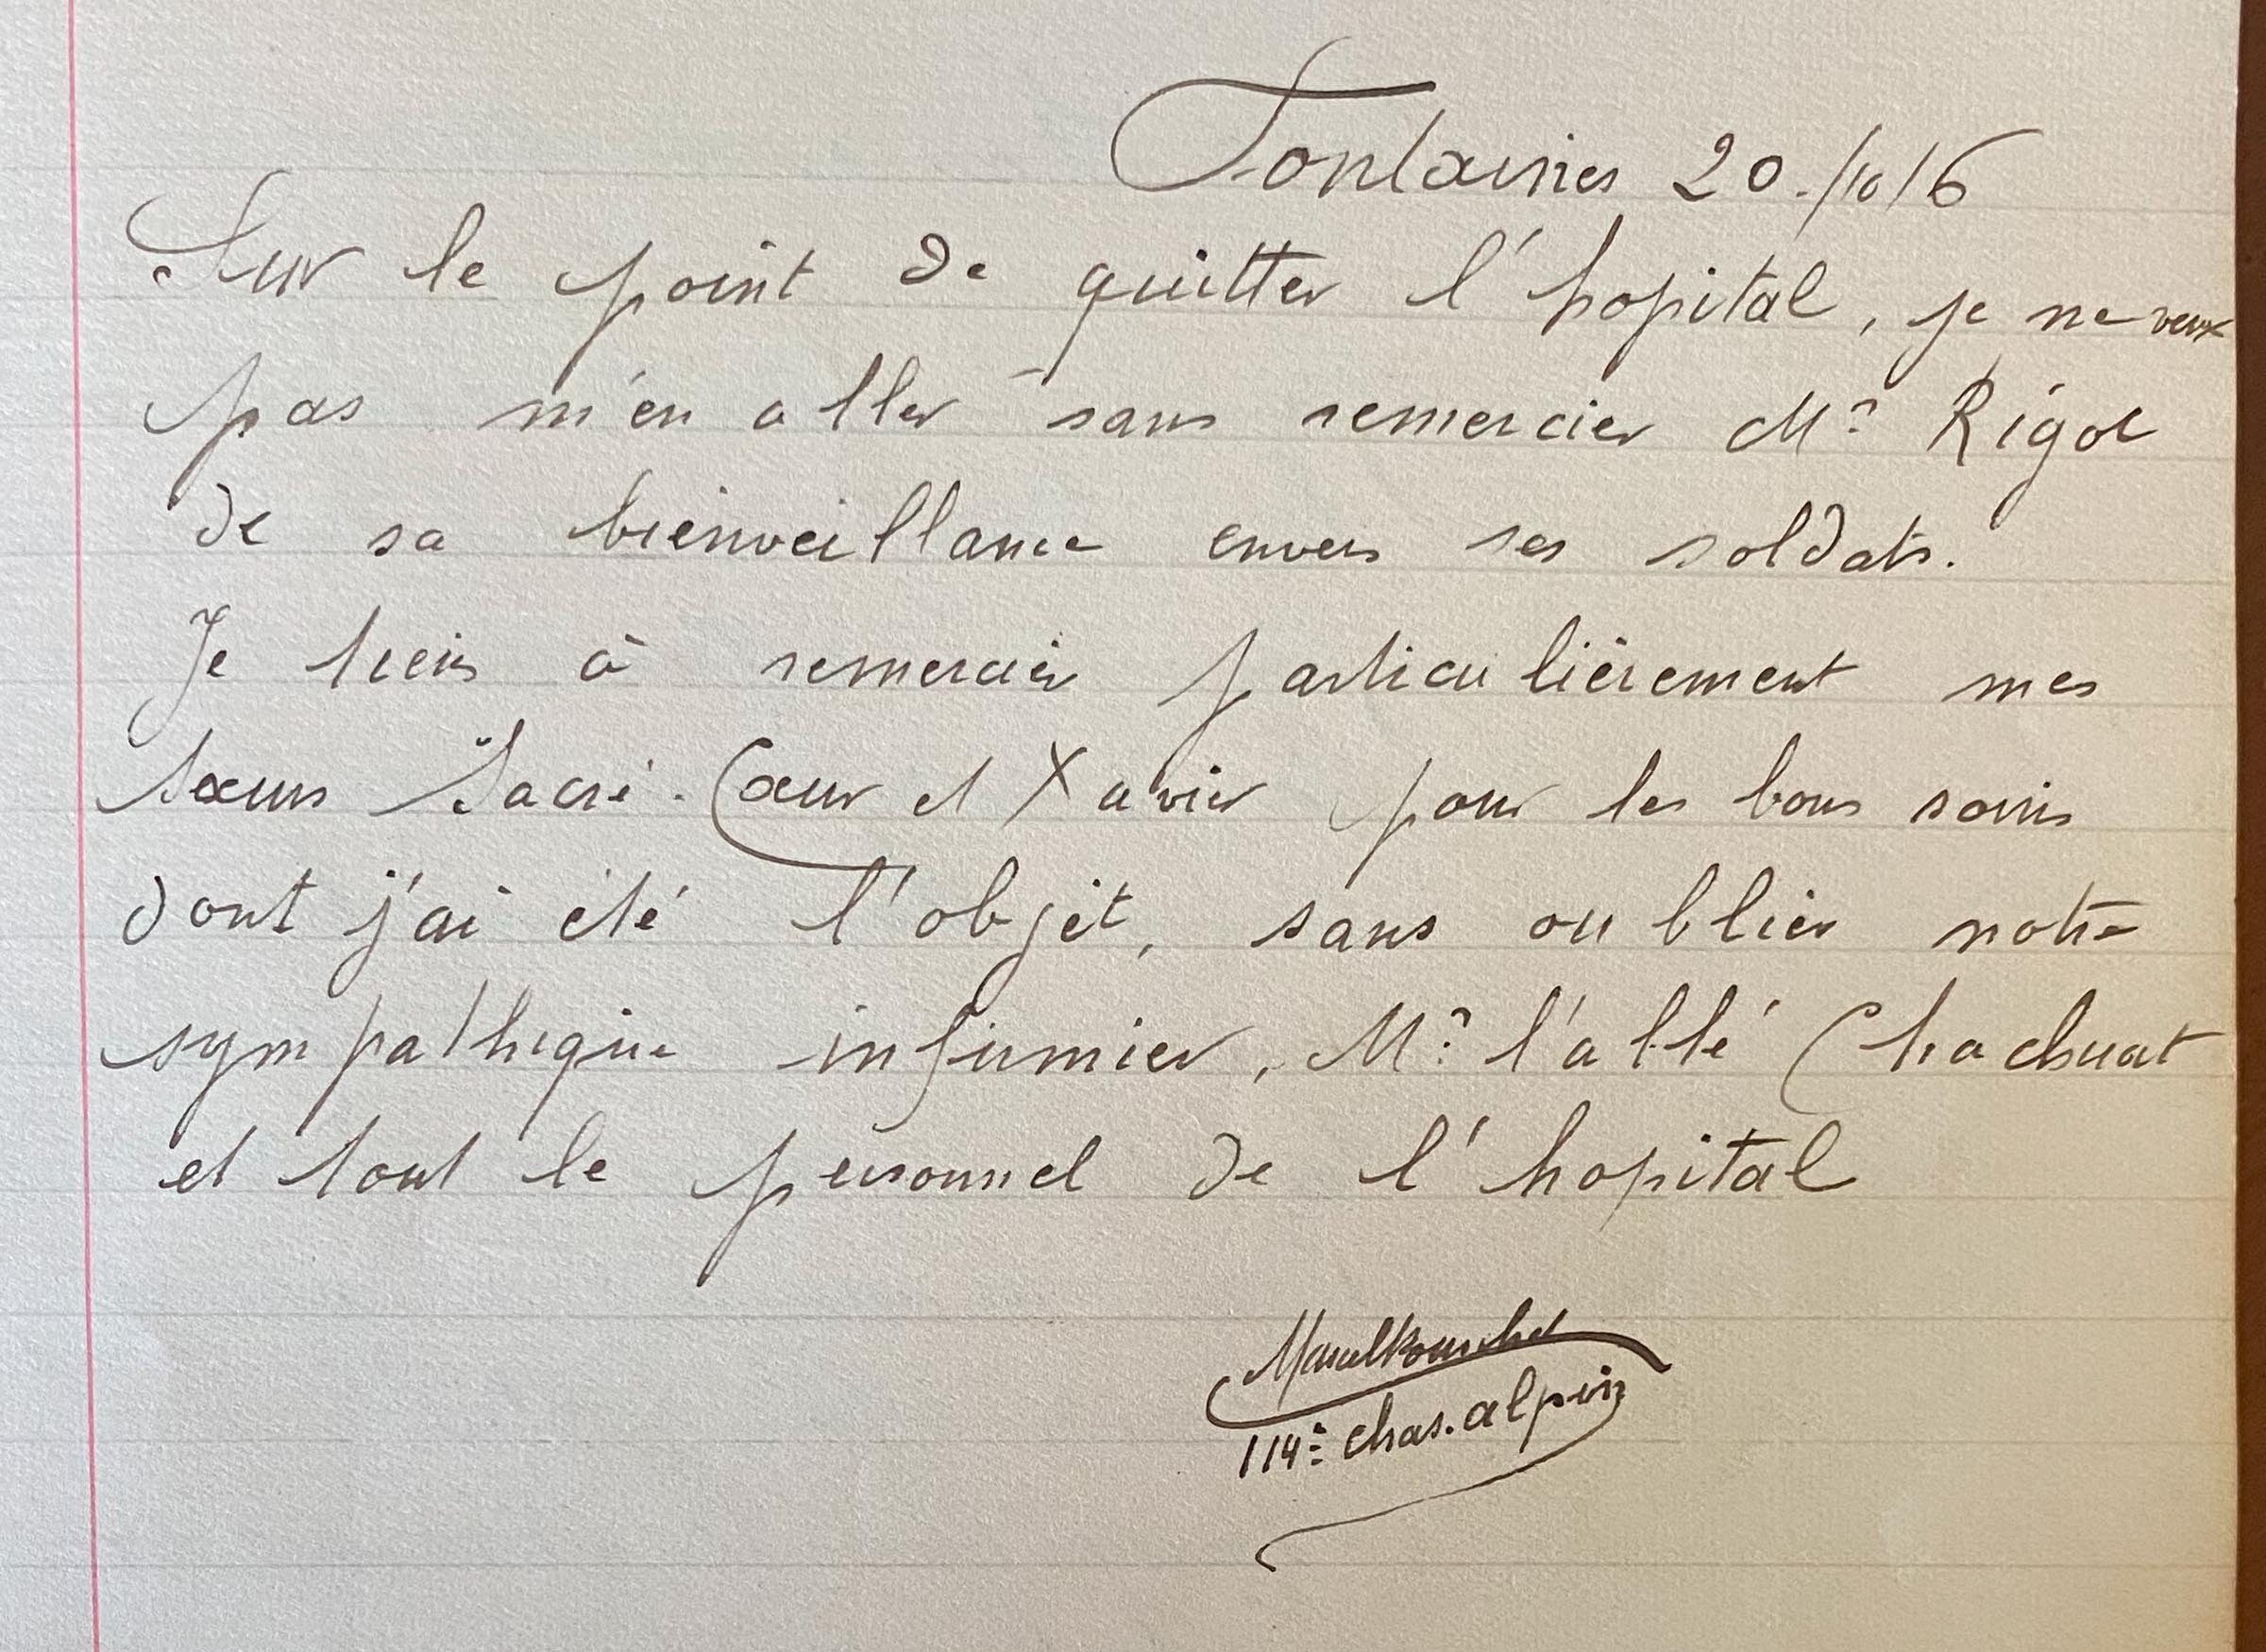 Fontaines 20./10/16
Sur le point de quitter l'hopital, je ne veux
pas m'en aller sans remercier Mr Rigot
de sa bienveillance envers ses soldats.
Je tiens à remercier particulièrement mes
Sœurs Sacré-Cœur et Xavier pour les bons soins
dont j'ai été l'objet, sans oublier notre
sympathique infirmier, Mr l'abbé Chachuat
et tout le personnel de l'hopital
Marcel
114e chas. alpin